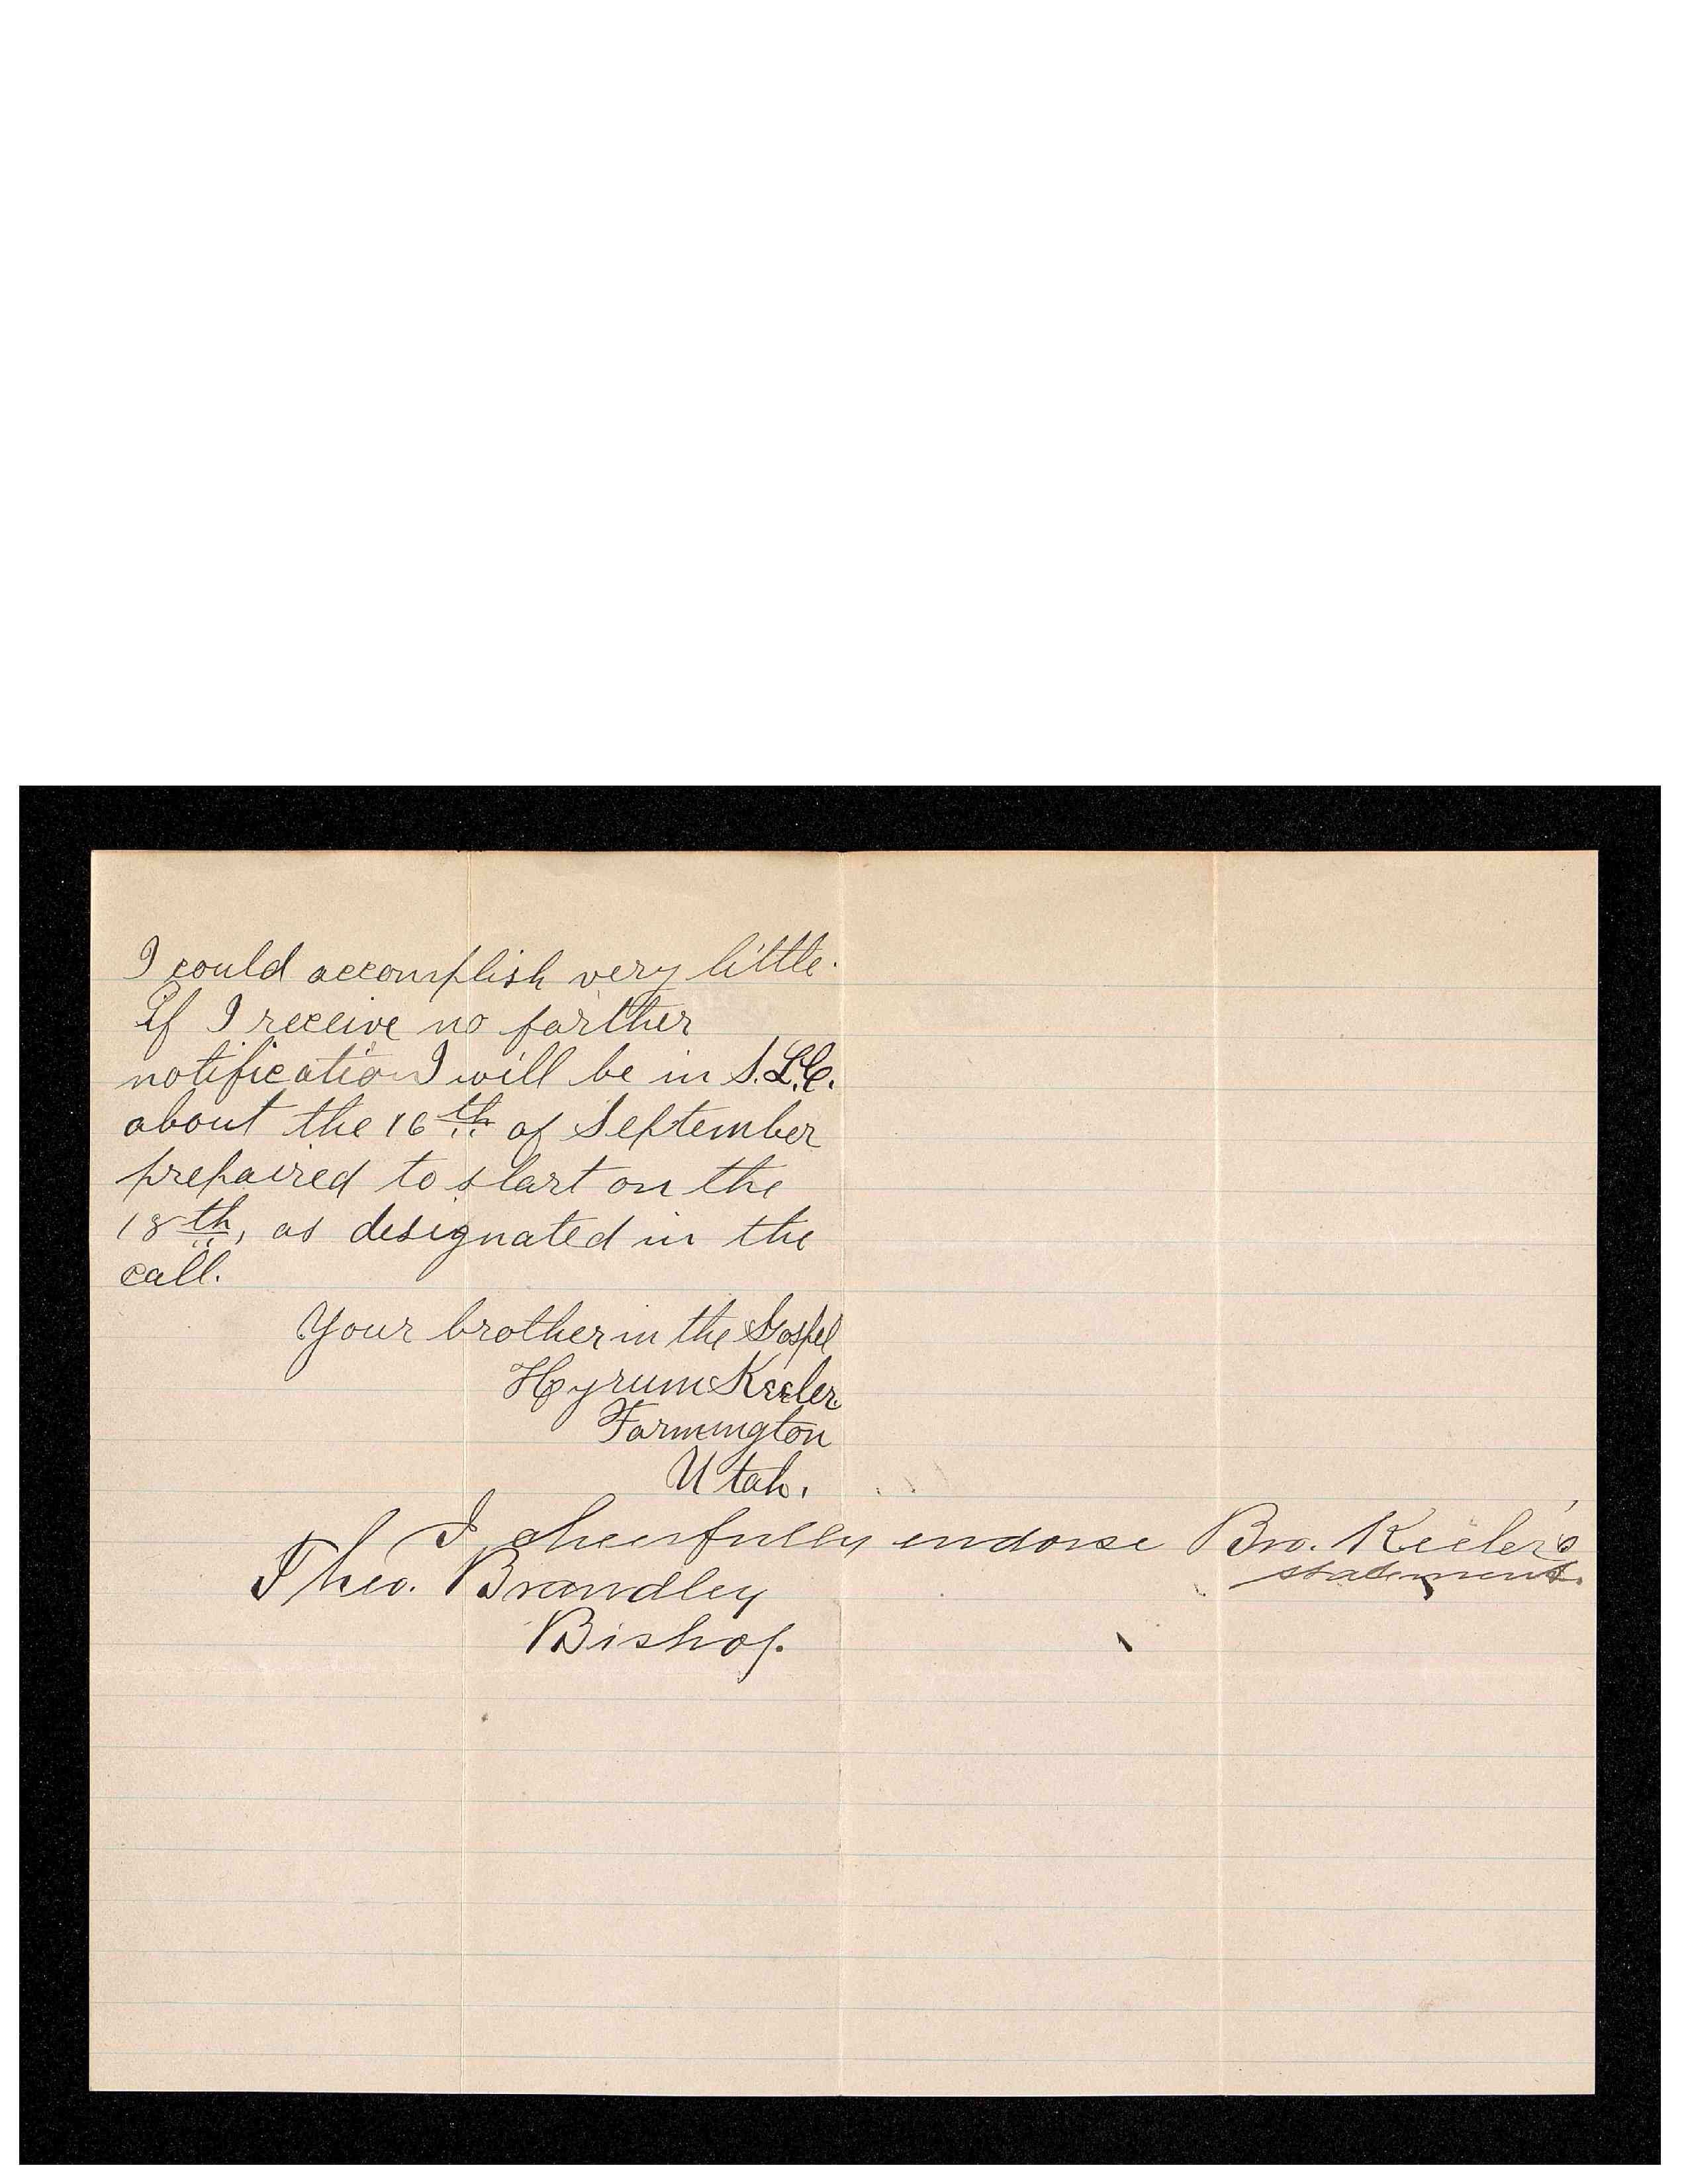 I could accomplish very little.
If I receive no farther
notification I will be in S.L.C.
about the 16th of September
prepaired to start on the
18th, as designated in the
call.
Your brother in the Gospel
Hyrum Keeler.
Farmington
Utah.
I cheerfully endorse Bro. Keeler's
statement.
Theo. Brandley
Bishop.